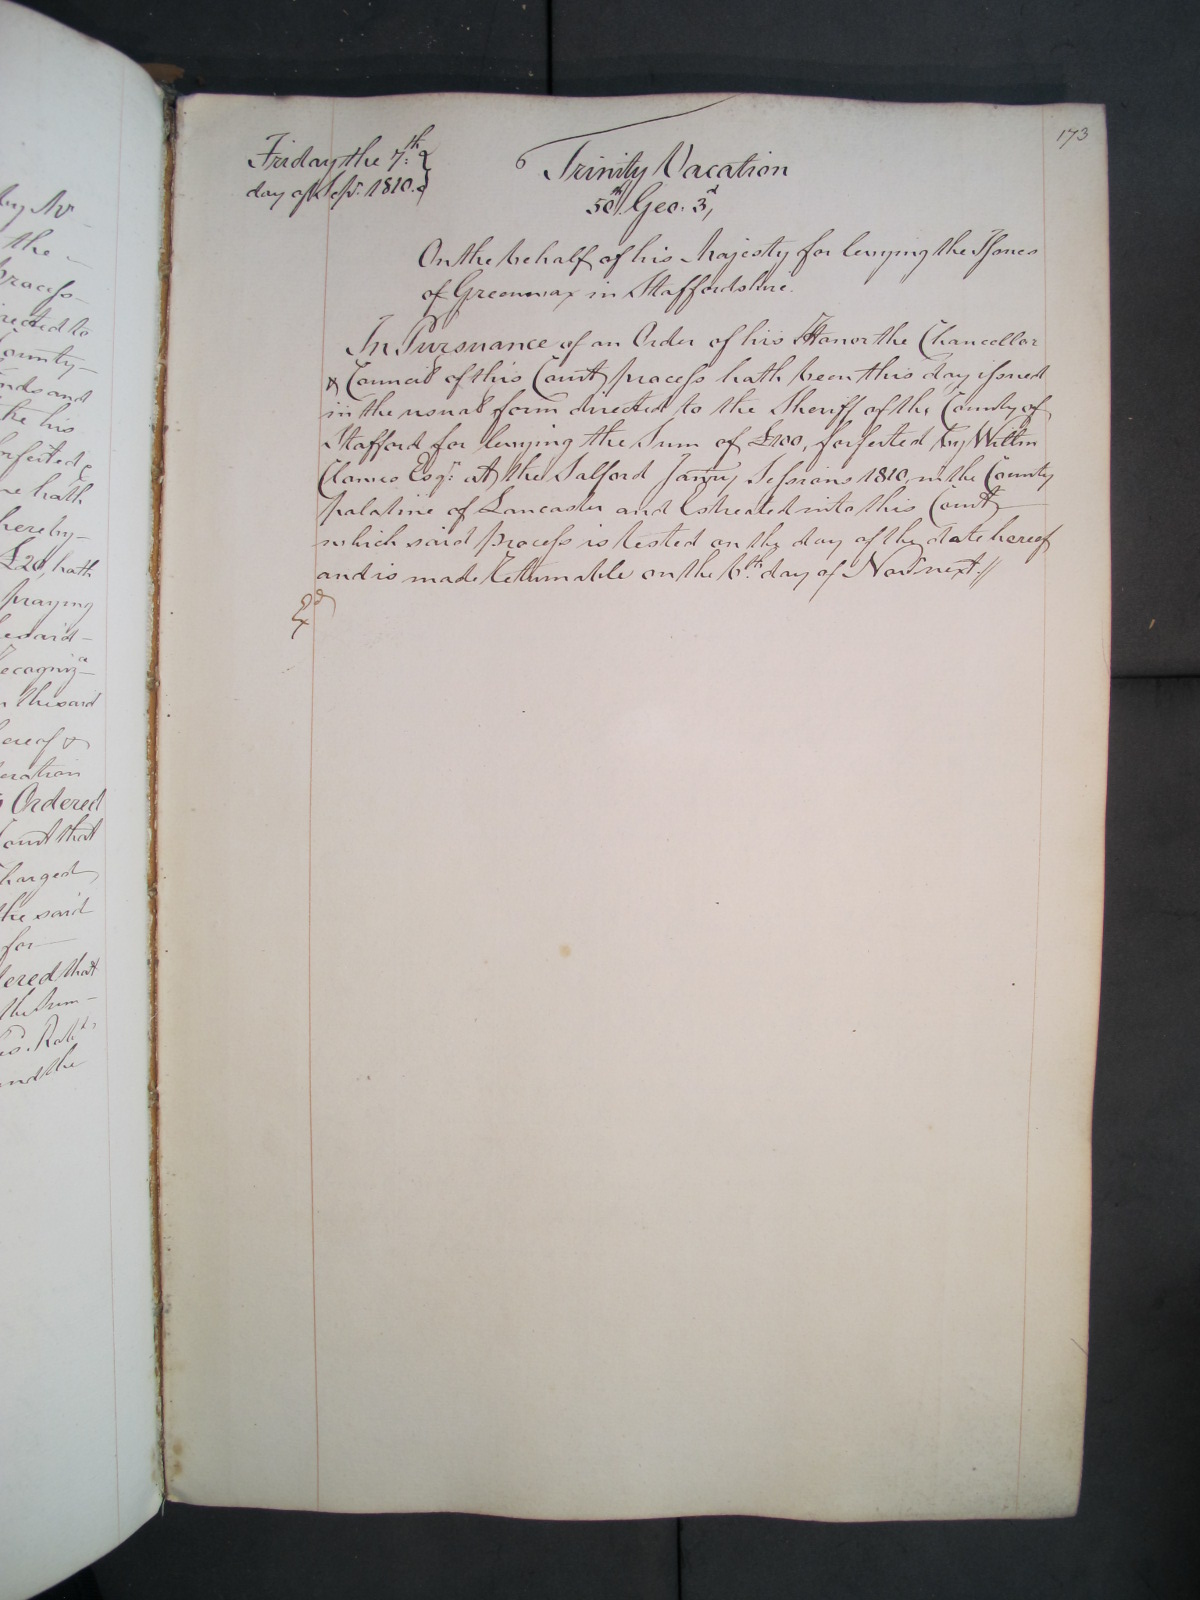 173
Friday the 7:th
day of Sepr. 1810.
Trinity Vacation
50th. Geo. 3d,
On the behalf of his Majesty for levying the Issues
of Greenwax in Staffordshire.
In Pursuance of an Order of his Honor the Chancellor
& Council of this Court process hath been this day issued
in the usual form directed to the Sheriff of the County of
Stafford for levying the Sum of £100, forfeited by Willm
Esqr: at the Salford Janry Sessions 1810, in the County
palatine of Lancaster and Estreated into this Court
which said process is tested on the day of the date hereof
and is made Returnable on the 6:th day of Novr next.//
Exd
by Mr
the
process
directed to
County
and
the his
forfeited
hath
hereby
£20, hath
praying
said
Recogniza
the said
hereof &
Ordered
Court that
charged
the said
for
ordered that
the Sum
and the